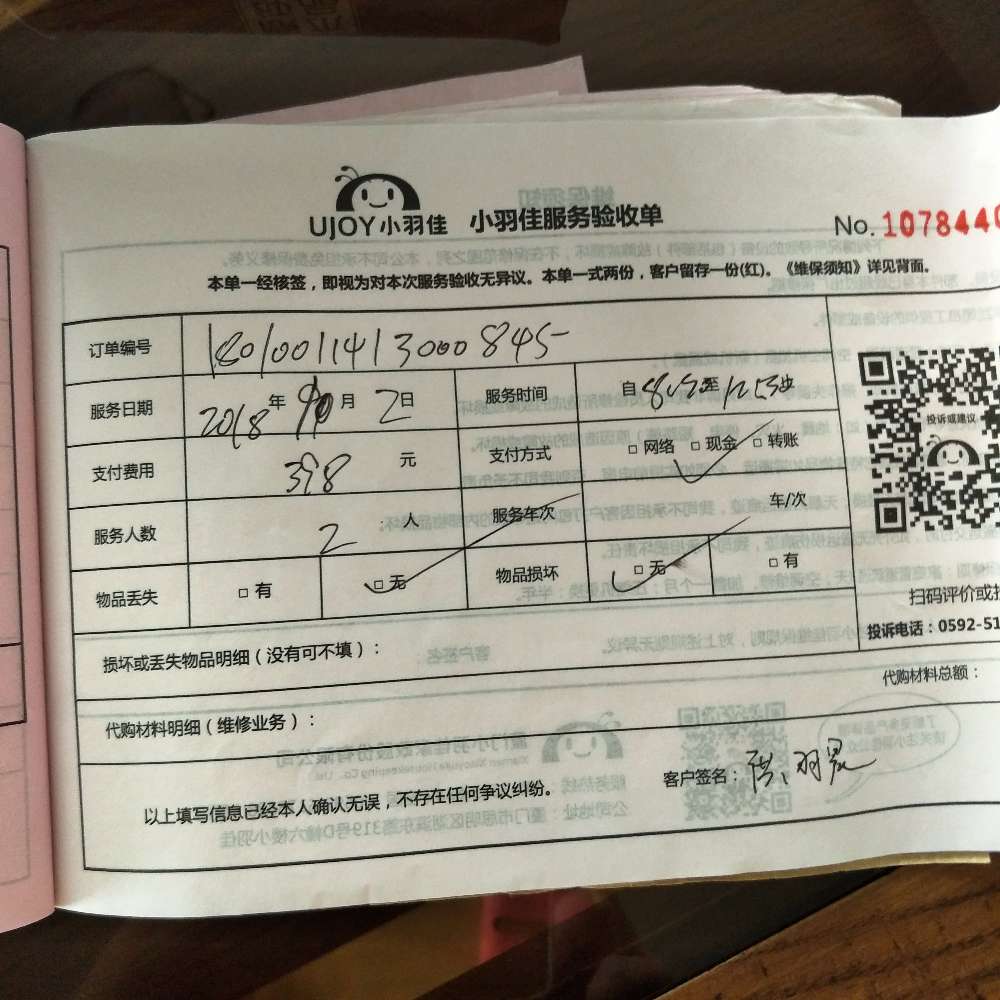 UJOY小羽佳 小羽佳服务验收单
No. 1078440
本单一经核签，即视为对本次服务验收无异议。本单一式两份，客户留存一份(红)。《维保须知》详见背面。
订单编号 18010011413000845
服务日期 2018年10月2日 服务时间 自 至
支付费用 398元 支付方式 □ 网络 □ 现金 □ 转账
服务人数 2人 服务车次 车/次
物品丢失 □ 有 □ 无 物品损坏 □ 无 □ 有
投诉或建议
扫码评价或
投诉电话：0592-51
损坏或丢失物品明细（没有可不填）：
代购材料明细（维修业务）：
代购材料总额：
以上填写信息已经本人确认无误，不存在任何争议纠纷。
客户签名：洪羽晨